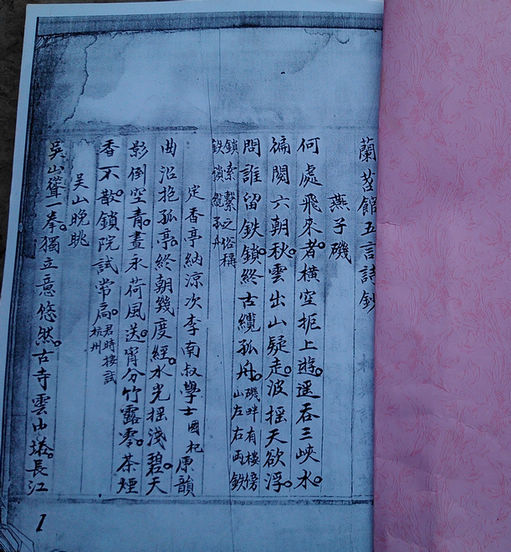 蘭苕館五言詩鈔
燕子磯
何處飛來者。橫空扼上遊。遥吞三峽水。
徧閱六朝秋。雲出山疑走。波摇天欲浮。
問誰留鉄鎖。終古纜孤舟。磯畔有樓傍山左右両鉄
鎖索繫之俗稱鉄鎖纜孤舟
定香亭納涼次李南叔學士國杞原韻
曲沼抱孤亭。終朝幾度經。水光摇淺碧。天
影倒空青。晝永荷風送。宵分竹露零。茶煙
香不散。鎖院試常扃。君時按試杭州
吳山晚眺
吳山聳一拳。獨立意悠然。古寺雲中。長江
1